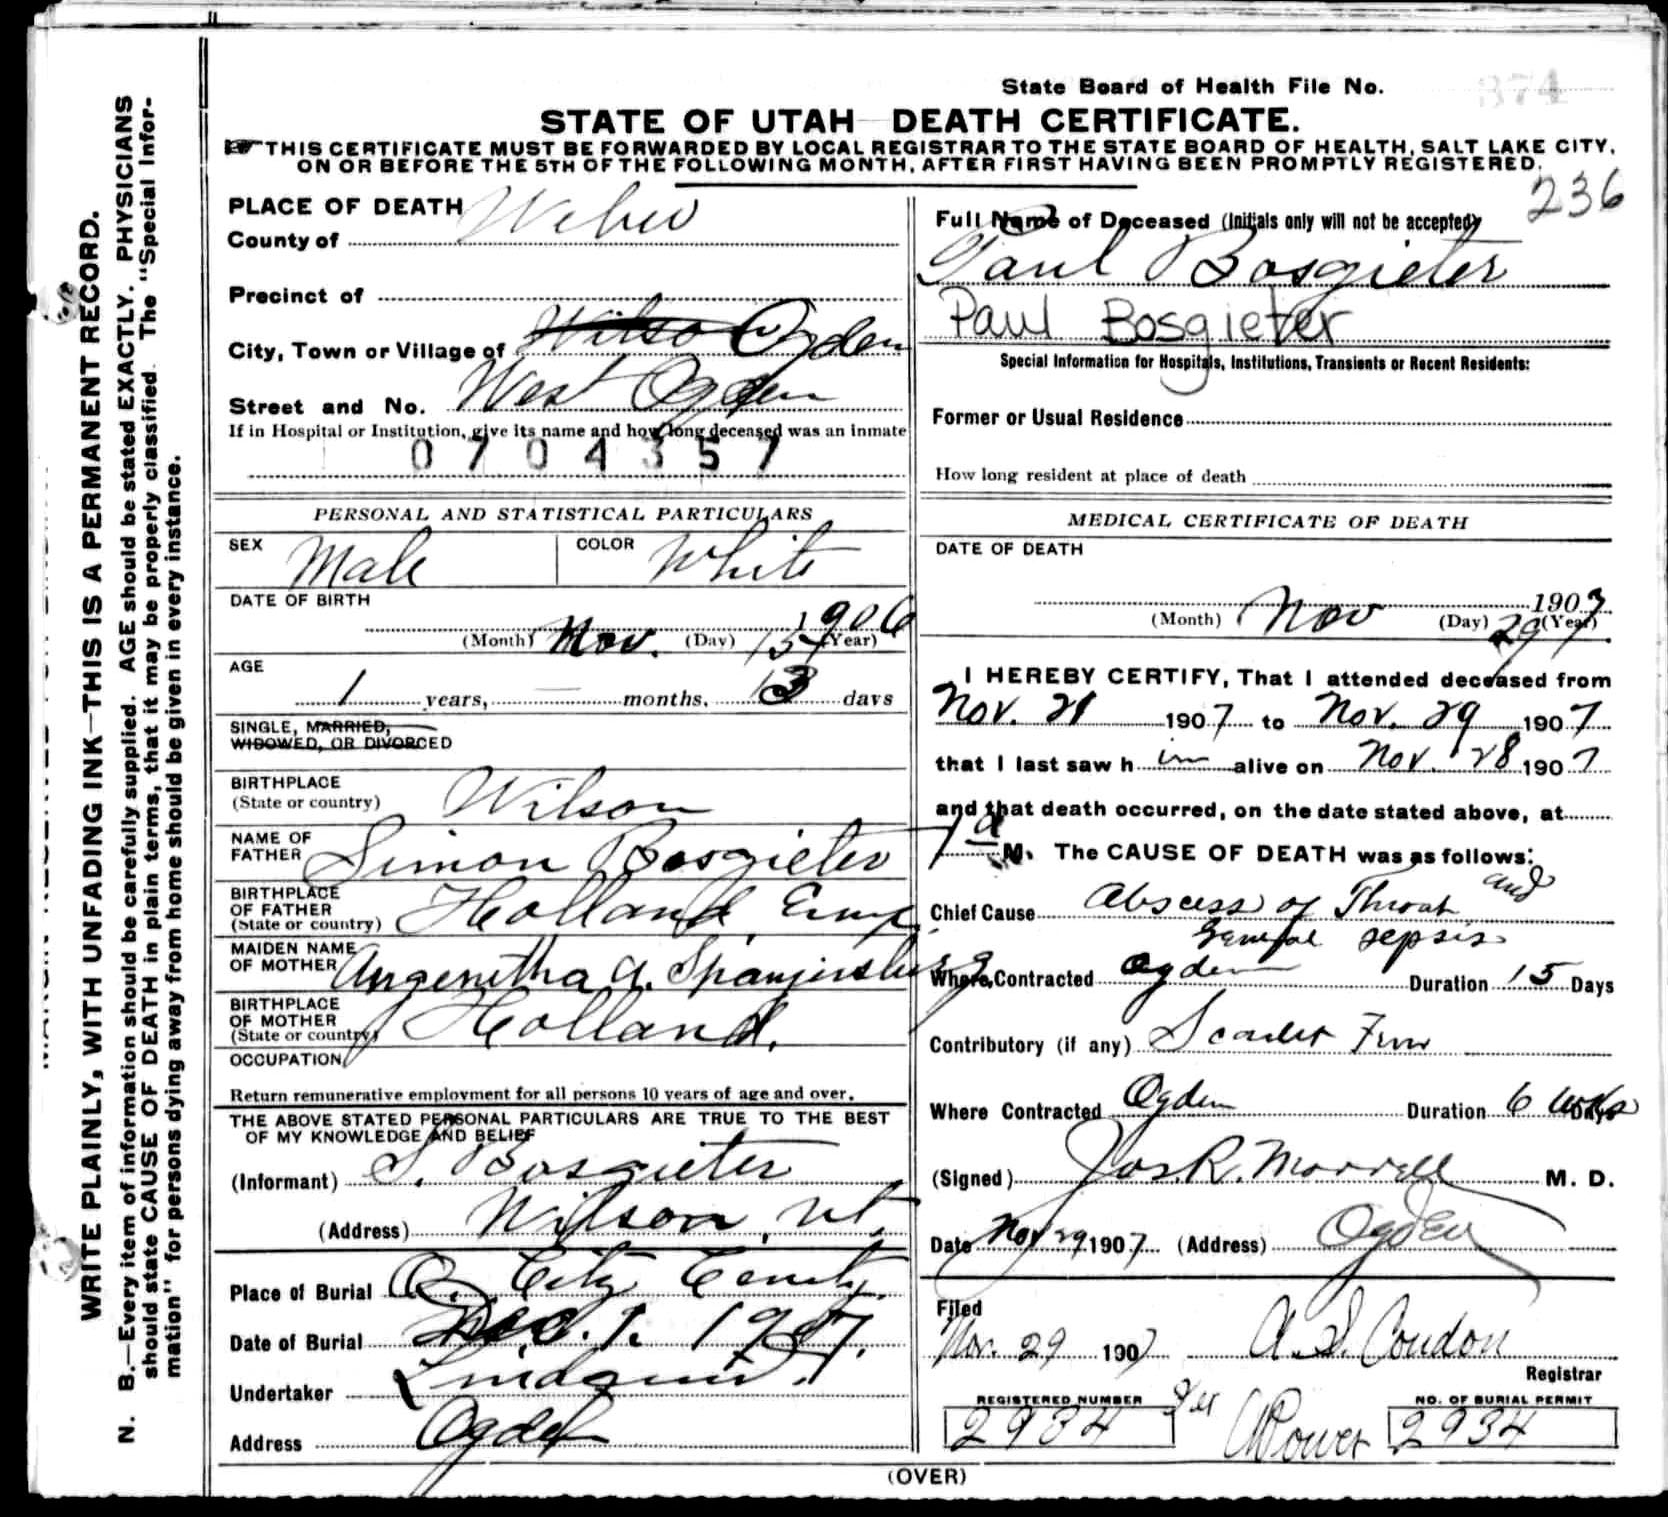 State Board of Health File No. 374
STATE OF UTAH DEATH CERTIFICATE.
THIS CERTIFICATE MUST BE FORWARDED BY LOCAL REGISTRAR TO THE STATE BOARD OF HEALTH, SALT LAKE CITY,
ON OR BEFORE THE 5TH OF THE FOLLOWING MONTH, AFTER FIRST HAVING BEEN PROMPTLY REGISTERED.
236
WRITE PLAINLY, WITH UNFADING INK—THIS IS A PERMANENT RECORD.
N. B.—Every item of information should be carefully supplied. AGE should be stated EXACTLY. PHYSICIANS
should state CAUSE OF DEATH in plain terms, that it may be properly classified. The "Special Infor-
mation" for persons dying away from home should be given in every instance.
PLACE OF DEATH
County of Weber
Precinct of
City, Town or Village of Wilso Ogden
Street and No. West Ogden
If in Hospital or Institution, give its name and how long deceased was an inmate
0704357
PERSONAL AND STATISTICAL PARTICULARS
SEX Male COLOR White
DATE OF BIRTH
(Month) Nov. (Day) 15 1906 (Year)
AGE
1 years, — months, 13 days
SINGLE, MARRIED,
WIDOWED, OR DIVORCED
BIRTHPLACE
(State or country) Wilson
NAME OF
FATHER Simon Bosgieter
BIRTHPLACE
OF FATHER
(State or country) Holland,
MAIDEN NAME
OF MOTHER A.
BIRTHPLACE
OF MOTHER
(State or country) Holland.
OCCUPATION
Return remunerative employment for all persons 10 years of age and over.
THE ABOVE STATED PERSONAL PARTICULARS ARE TRUE TO THE BEST
OF MY KNOWLEDGE AND BELIEF
(Informant) S. Bosgieter
(Address) Wilson, Ut.
Place of Burial O. City
Date of Burial Dec. 1. 1907.
Undertaker Lindquist
Address Ogden
Full Name of Deceased (Initials only will not be accepted)
Paul Bosgieter
Paul Bosgieter
Special Information for Hospitals, Institutions, Transients or Recent Residents:
Former or Usual Residence
How long resident at place of death
MEDICAL CERTIFICATE OF DEATH
DATE OF DEATH
1907
(Month) Nov (Day) 29 (Year)
I HEREBY CERTIFY, That I attended deceased from
Nov. 21 1907 to Nov. 29 1907
that I last saw h im alive on Nov. 28 1907
and that death occurred, on the date stated above, at
1 a M. The CAUSE OF DEATH was as follows:
Chief Cause Abscess of Throat and
General sepsis
Where Contracted Ogden Duration 15 Days
Contributory (if any) Scarlet Fever
Where Contracted Ogden Duration 6 wks
(Signed) Jos. R. Morrell M. D.
Date Nov 29 1907 (Address) Ogden
Filed
Nov. 29 1907 A. S. Condon
Registrar
REGISTERED NUMBER
2934
per Power
NO. OF BURIAL PERMIT
2934
(OVER)